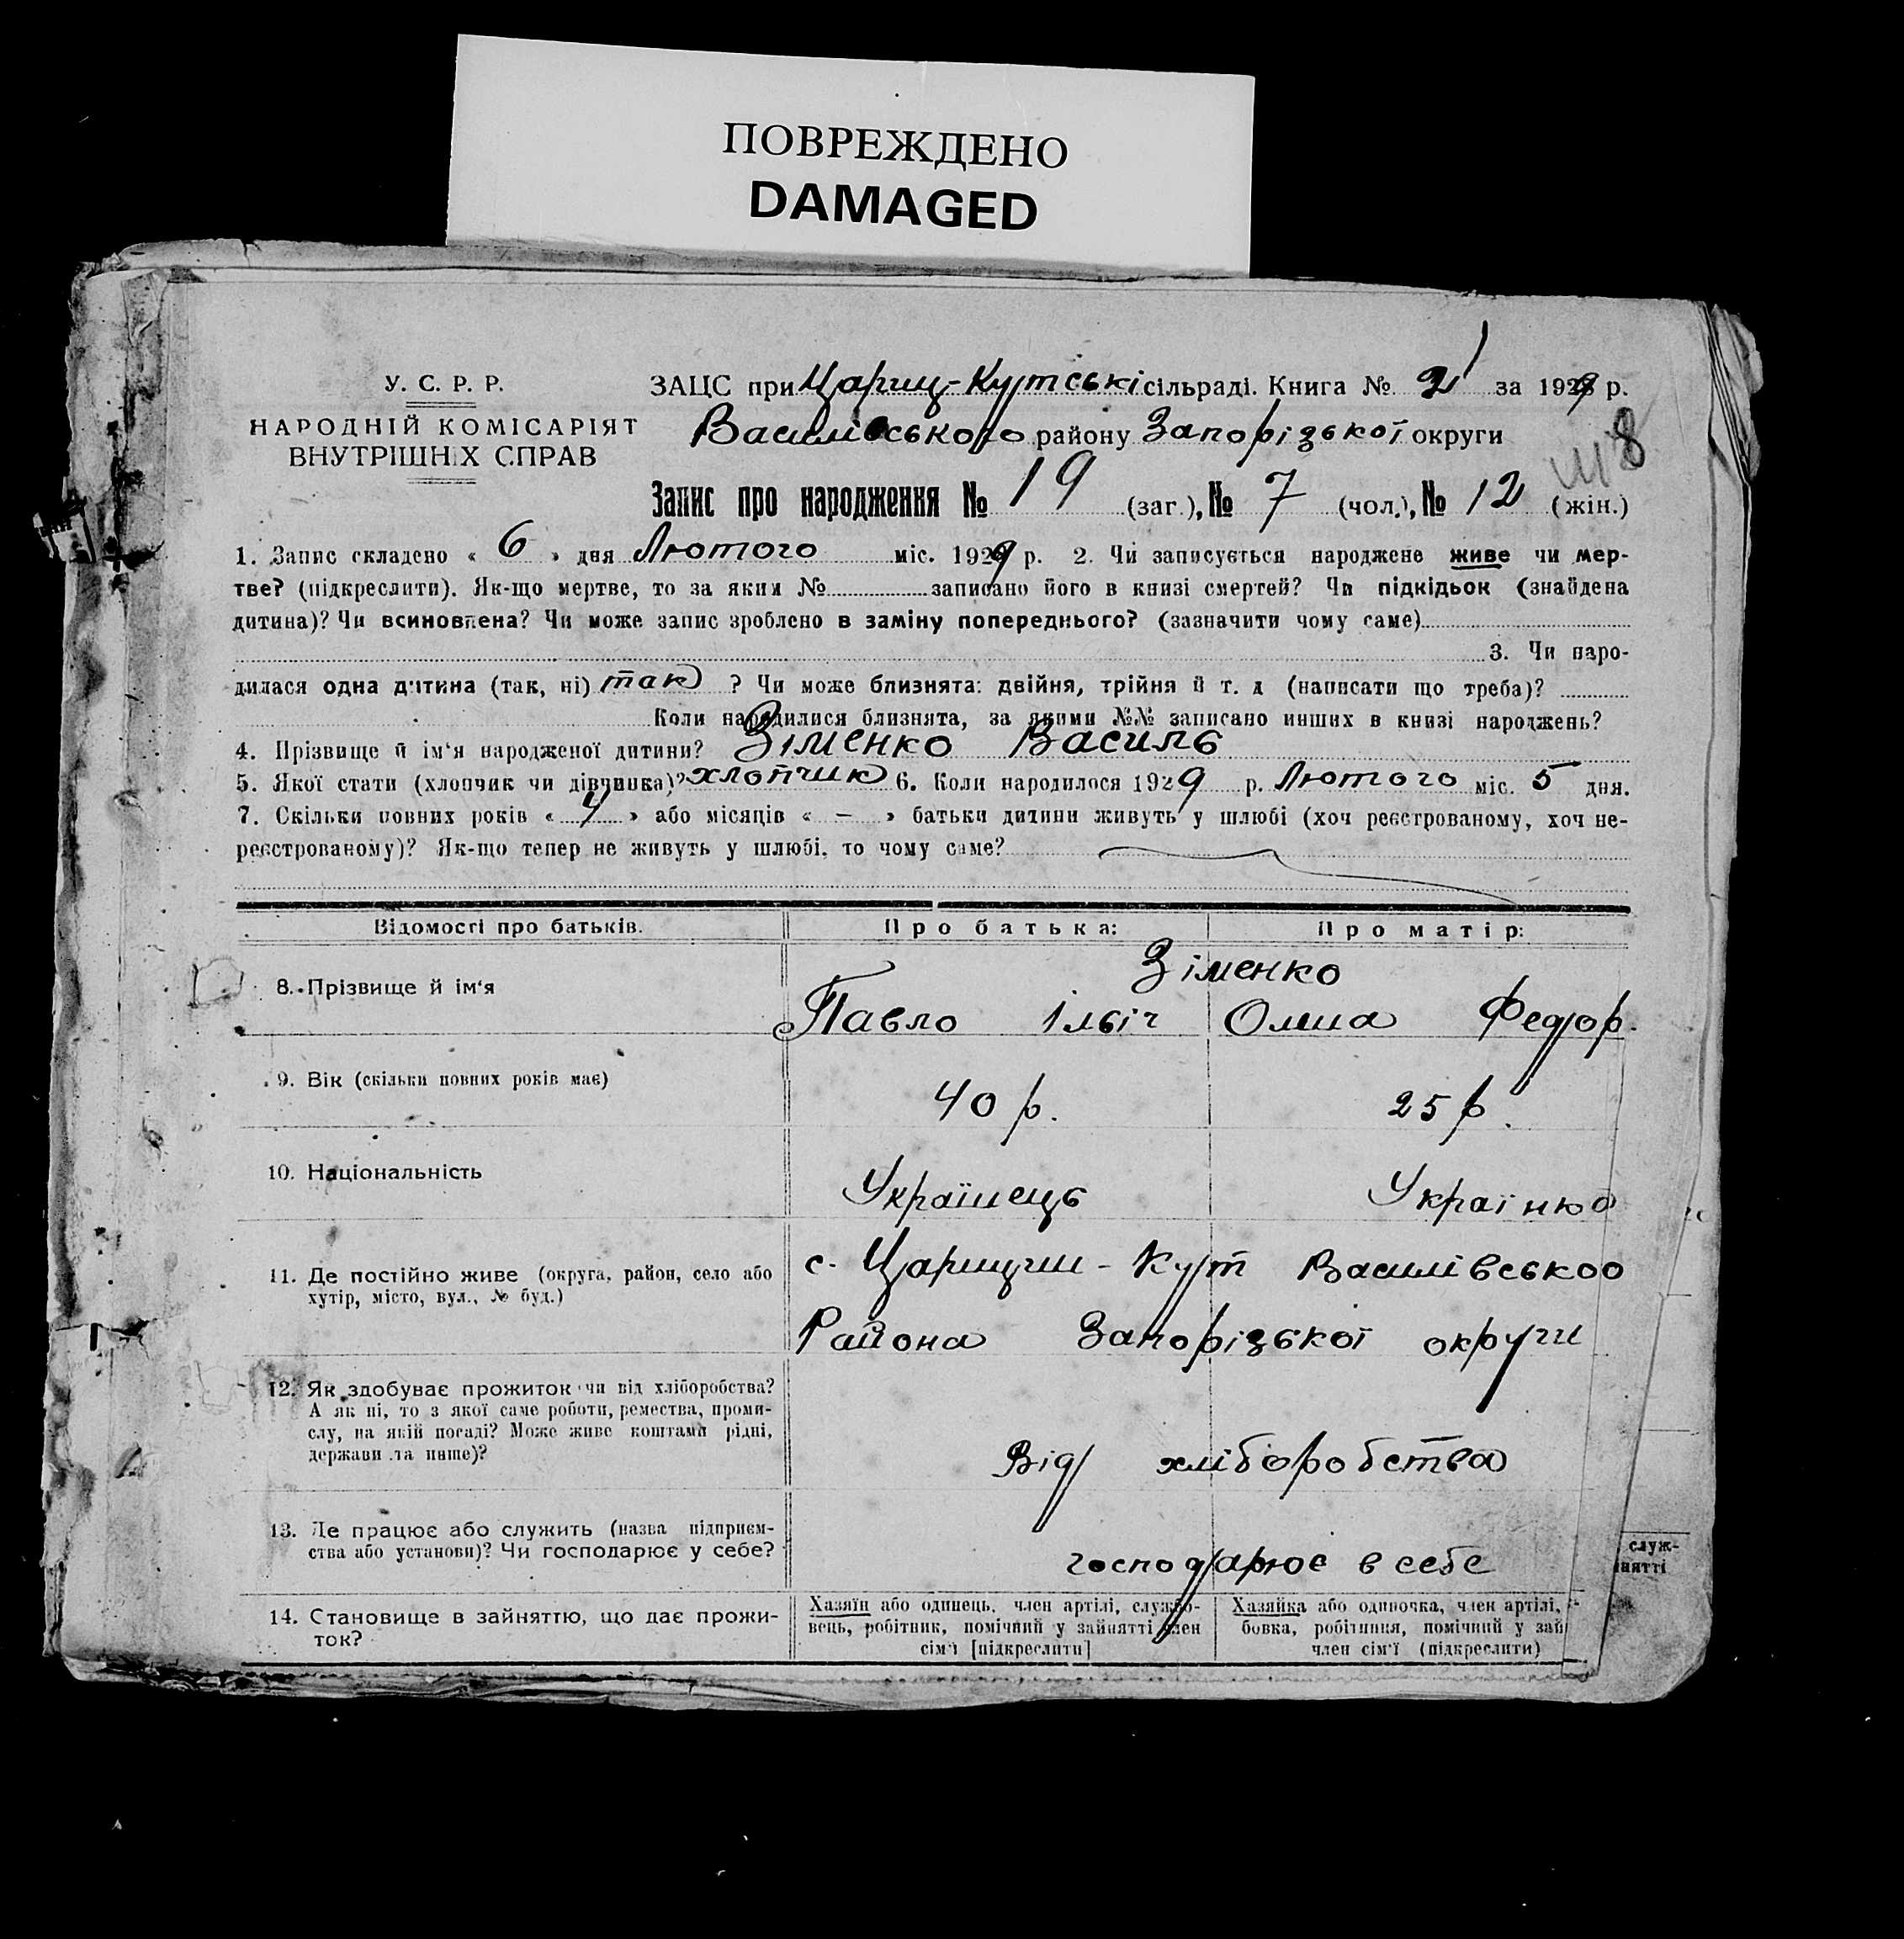 ПОВРЕЖДЕНО
DAMAGED
У. С. Р. Р.
НАРОДНІЙ КОМІСАРІЯТ
ВНУТРІШНІХ СПРАВ
ЗАЦС при Цариц-Кутські сільраді. Книга № 2 за 1929 р.
Василівського району Запорізької округи
Запис про народження № 19 (заг.), № 7 (чол.), № 12 (жін.)
8
1. Запис складено « 6 » дня Лютого міс. 1929 р. 2. Чи записується народжене живе чи мер-
тве? (підкреслити). Як-що мертве, то за яким № записано його в книзі смертей? Чи підкідьок (знайдена
дитина)? Чи всиновлена? Чи може запис зроблено в заміну попереднього? (зазначити чому саме)
3. Чи наро-
дилася одна дитина (так, ні) так ? Чи може близнята: двійня, трійня й т. д (написати що треба)?
Коли народилися близнята, за якими №№ записано инших в книзі народжень?
4. Прізвище й ім'я народженої дитини? Зіменко Василь
5. Якої стати (хлопчик чи дівчинка)? хлопчик 6. Коли народилося 1929 р. Лютого міс. 5 дня.
7. Скільки повних років « 4 » або місяців « – » батьки дитини живуть у шлюбі (хоч реєстрованому, хоч не-
реєстрованому)? Як-що тепер не живуть у шлюбі, то чому саме?
Відомості про батьків. Про батька: Про матір:
Зіменко
8. Прізвище й ім'я Павло Ільіч Федор.
9. Вік (скільки повних років має) 40 р. 25 р.
10. Національність Українець Українка
11. Де постійно живе (округа, район, село або
хутір, місто, вул., № буд.)
с. Царицин-Кут Василівського
Района Запорізької округи
12. Як здобуває прожиток чи від хліборобства?
А як ні, то з якої саме роботи, ремества, проми-
слу, на якій посаді? Може живе коштами рідні,
держави та инше)?
Від хліборобства
13. Де працює або служить (назва підприєм-
ства або установи)? Чи господарює у себе?
господарює в себе
служ-
нятті
14. Становище в зайняттю, що дає прожи-
ток?
Хазяїн або одинець, член артілі, службо-
вець, робітник, помічний у зайнятті член
сім'ї [підкреслити]
Хазяйка або одиночка, член артілі,
бовка, робітниця, помічний у зай
член сім'ї (підкреслити)